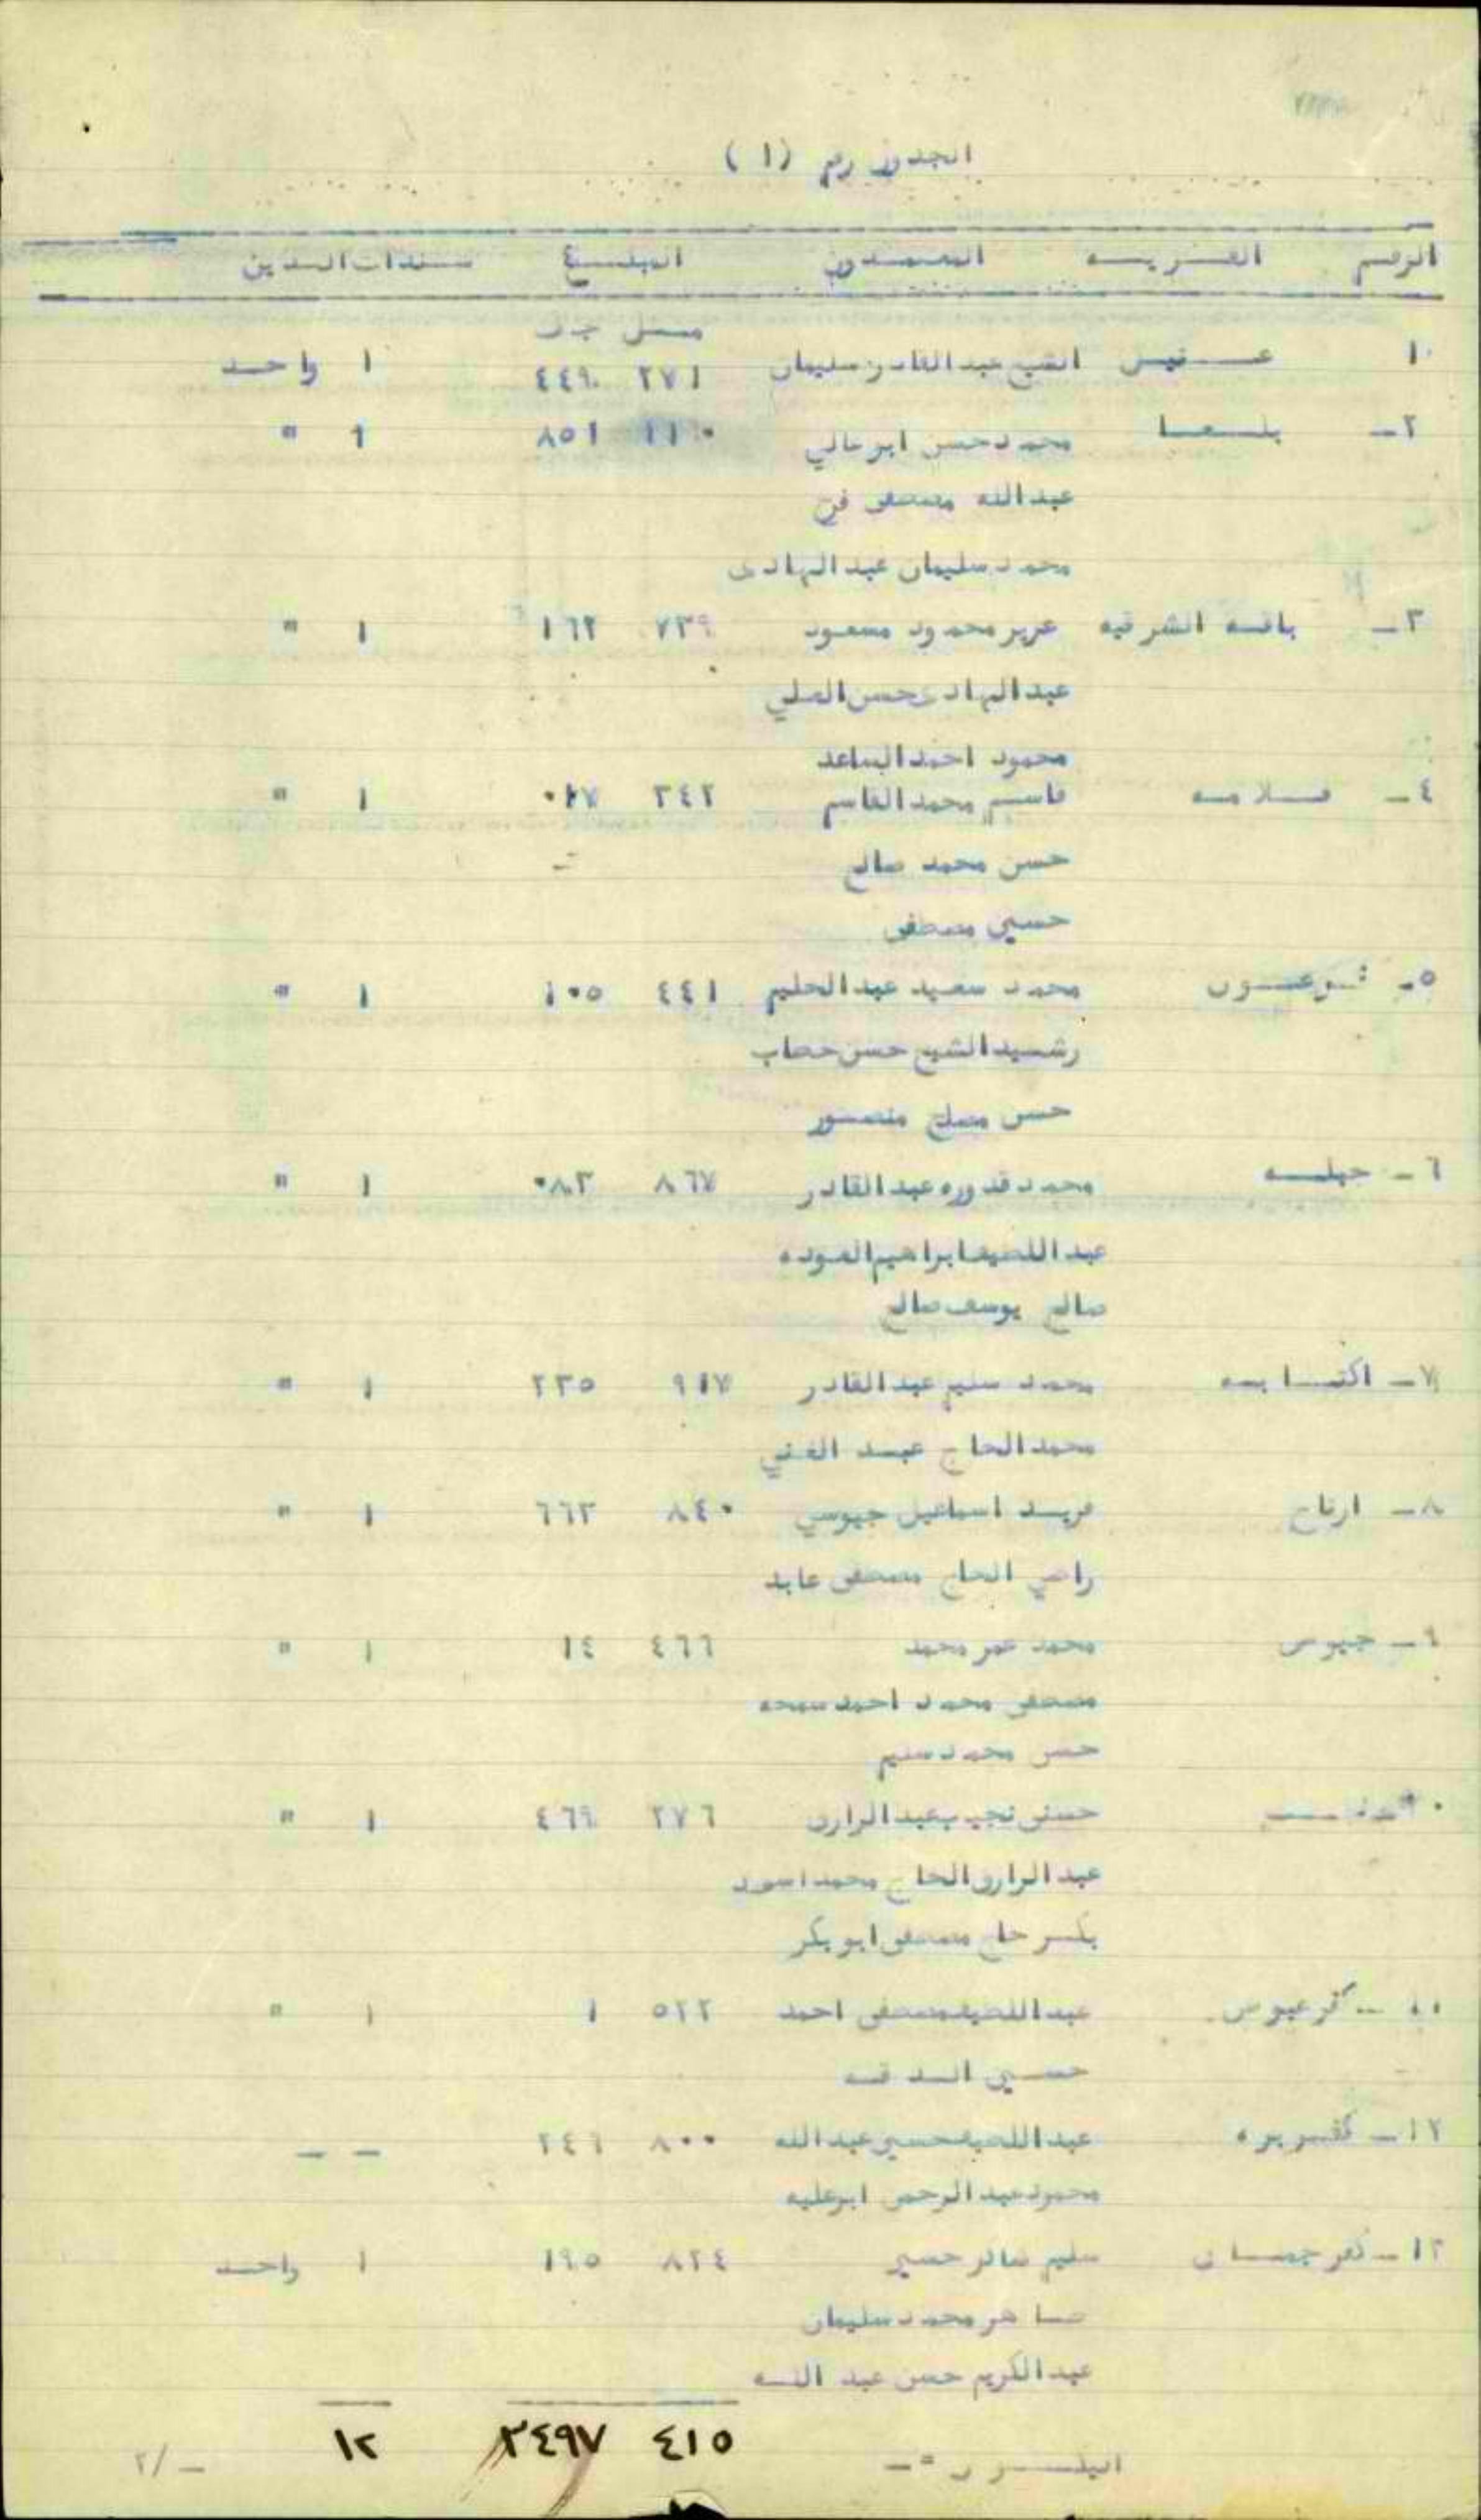 الجدول رقم (١)
الرقم القريــه المعتمدون المبلــغ سندات الدين
مــل جـ ف
١ عــتيل الشيخ عبد القادر سليمان ٢٧١ ٤٤٩ ١ واحــد
٢ــ بلــعــا محمد حسن ابو عالي ١١٠ ٨٥١ ١ "
عبد الله مصطفى فرج
محمد سليمان عبد الهادى
٣ــ باقــه الشرقيه عزيز محمود مسعود ٧٣٩ ١٦٢ ١ "
عبد الهادى حسن العلي
محمود احمد المساعد
٤ــ عــلا مــه قاسم محمد القاسم ٣٤٢ ٠١٧ ١ "
حسن محمد صالح
حسين مصطفى
٥ــ شــو عــون محمد سعيد عبد الحليم ٤٤١ ١٠٥ ١ "
رشيد الشيخ حسن حطاب
حسن مصلح منصــور
٦ــ حبلــه محمد قدوره عبد القادر ٨٦٧ ٠٨٣ ١ "
عبد اللطيف ابراهيم العوده
صالح يوسف صالح
٧ــ اكتــا بــه محمد سليم عبد القادر ٩١٧ ٢٣٥ ١ "
محمد الحاج عبــد الغني
٨ــ ارتاح فريــد اسماعيل جيوسي ٨٤٠ ٦٦٣ ١ "
راضي الحاج مصطفى عابد
٩ــ جيوس محمد عمر محمد ٤٦٦ ١٤ ١ "
مصطفى محمد احمد سمحه
حسن محمد سليم
حسني نجيب عبد الرازق ٢٧٦ ٤٦٩ ١ "
عبد الرازق الحاج محمد اسعد
بكــر حاج مصطفى ابو بكر
١١ ــ كفر عبوس عبد اللطيف مصطفى احمد ٥٢٢ ١ ١ "
حسين
١٢ــ كفر بره عبد اللطيف حسين عبد الله ٨٠٠ ٢٤٦ ــ ــ
محمود عبد الرحمن ابو عليه
١٣ــ كفر جمــا ل سليم حسين ٨٢٤ ١٩٥ ١ واحــد
محمد سليمان
عبد الكريم حسن عبد اللــه
٤١٥ ٣٤٩٧ ١٢
ــ/٢